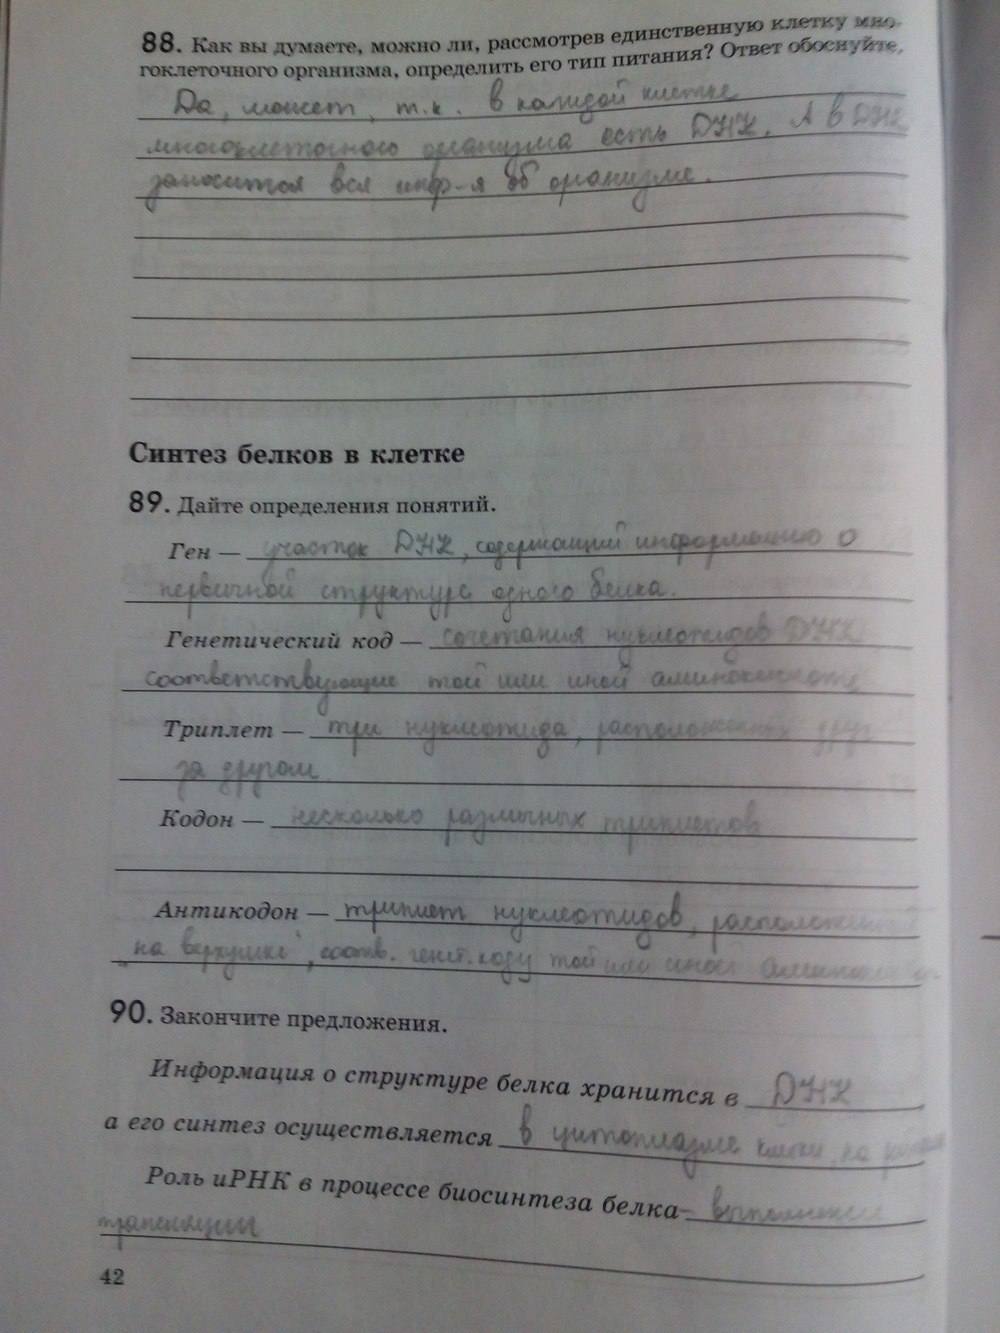 88. Как вы думаете, можно ли, рассмотрев единственную клетку мно-
гоклеточного организма, определить его тип питания? Ответ обоснуйте.
Да, может, т.к. в каждой клетке
многоклеточного организма есть ДНК. А в ДНК
заносится вся инф-я об организме.
Синтез белков в клетке
89. Дайте определения понятий.
Ген — участок ДНК, содержащий информацию о
первичной структуре одного белка.
Генетический код — сочетания нуклеотидов ДНК
соответствующие той или иной аминокислоте
Триплет — три нуклеотида, расположенных друг
за другом
Кодон — несколько различных триплетов
Антикодон — триплет нуклеотидов,
"на верхушке", соотв. генет. коду той или иной
90. Закончите предложения.
Информация о структуре белка хранится в ДНК
а его синтез осуществляется в цитоплазме клетки, на
Роль иРНК в процессе биосинтеза белка-
трансляции
42